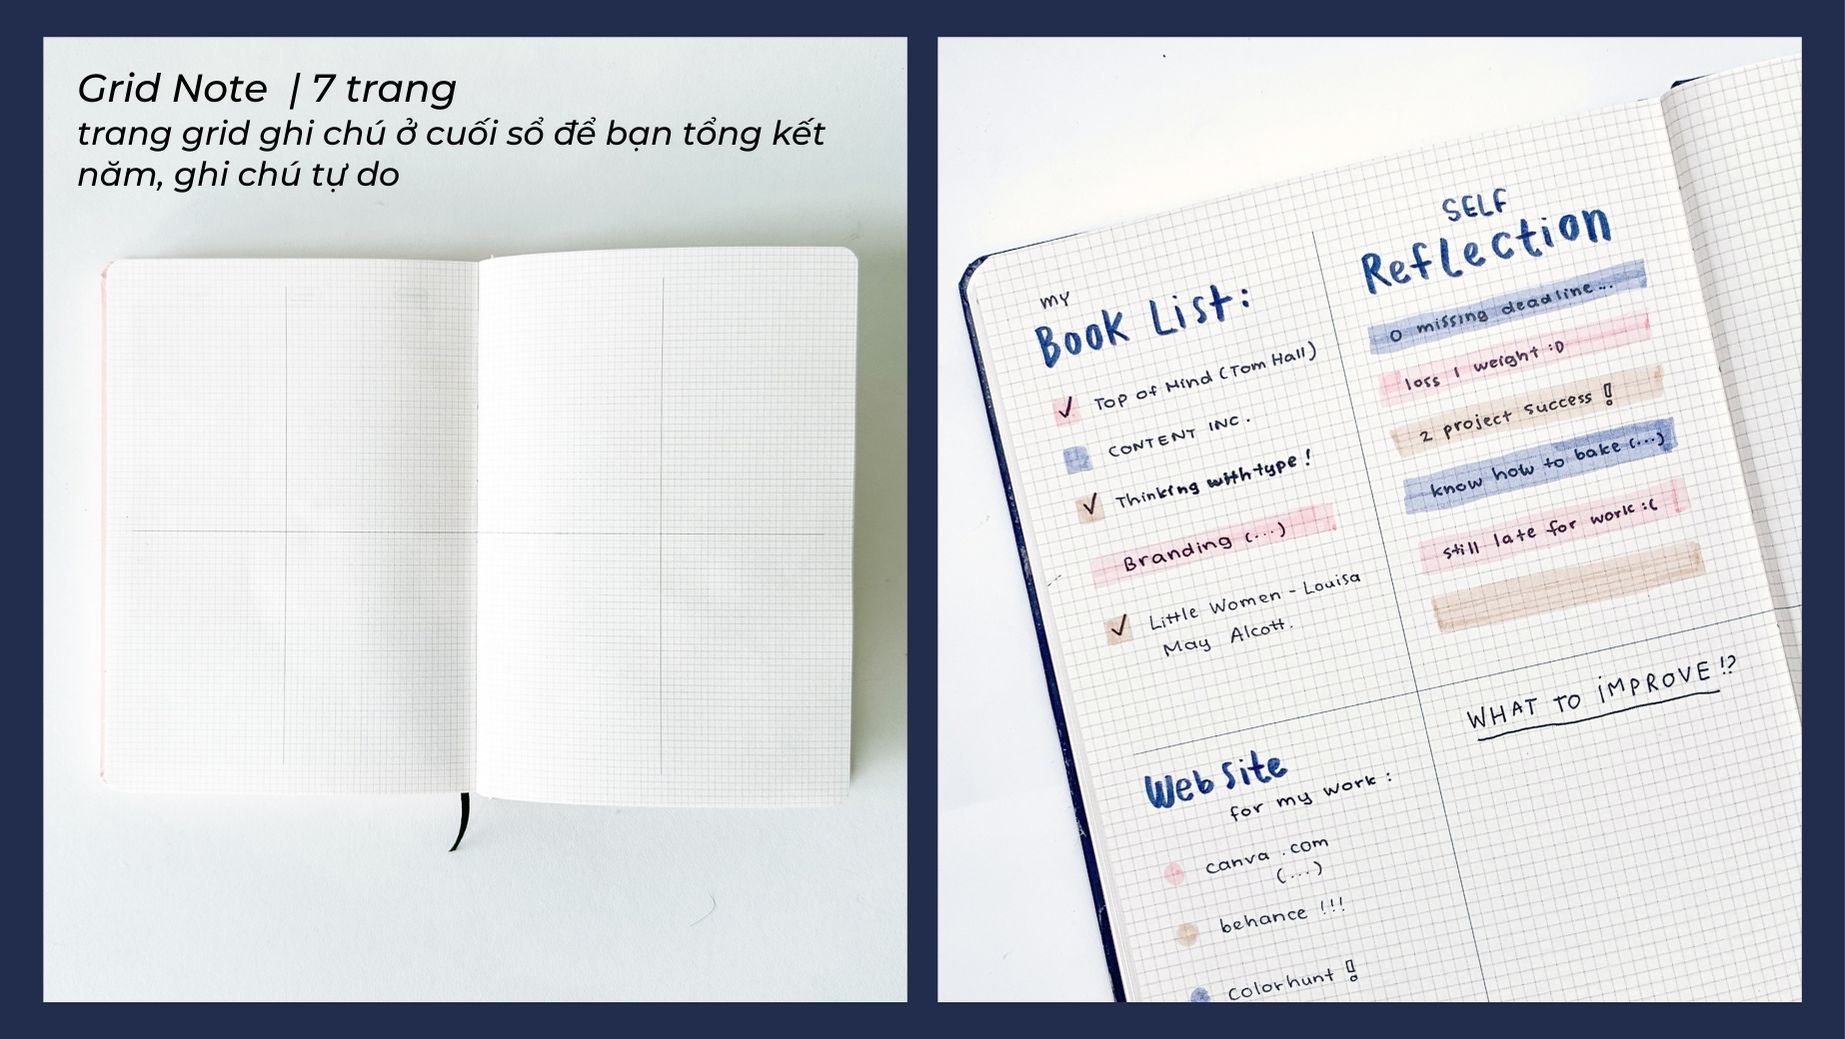 Grid Note | 7 trang
trang grid ghi chú ở cuối sổ để bạn tổng kết
năm, ghi chú tự do
my
Book List:
Top of Mind (Tom Hall)
CONTENT INC.
Thinking with type!
Branding (...)
Little Women - Louisa
May Alcott.
SELF
Reflection
0 missing deadline...
loss 1 weight :D
2 project success !
know how to bake (...)
still late for work :(
WHAT TO IMPROVE !?
Website
for my work :
canva .com
(...)
behance !!!
colorhunt !